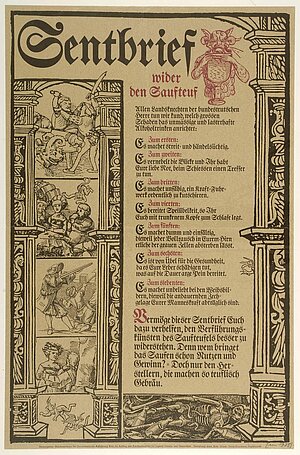 Sentbrief
wider
den Saufteuf
Allen Landsknechten der bundesteutschen
Heere tun wir kund, welch grossen
Schaden das unmässige und lasterhafte
Alkoholtrinken anrichtet:
Zum ersten:
Es machet streit- und händelsüchtig.
Zum zweiten:
Es vernebelt die Blicke und Ihr habt
Eure liebe Not, beim Schiessen einen Treffer
zu tun.
Zum dritten:
Es machet unfähig, ein Kraft-Fuhr-
werk ordentlich zu kutschieren.
Zum vierten:
Es bereitet Speiübelkeit, so Ihr
Euch mit trunkenem Kopfe zum Schlafe legt.
Zum fünften:
Es machet dumm und einfältig,
dieweil jeder Vollrausch in Eurem Hirn
etliche der grauen Zellen absterben lässt.
Zum sechsten:
Es ist von Übel für die Gesundheit,
da es Eure Leber schädigen tut,
was auf die Dauer arge Pein bereitet.
Zum siebenten:
Es machet unbeliebt bei den Weibsbil-
dern, dieweil die andauernden Zech-
gelage Eurer Manneskraft abträglich sind.
Vermöge dieser Sentbrief Euch
dazu verhelfen, den Verführungs-
künsten des Saufteufels besser zu
widerstehen. Denn wem bringet
das Saufen schon Nutzen und
Gewinn? - Doch nur den Her-
stellern, die machen so teuflisch
Gebräu.